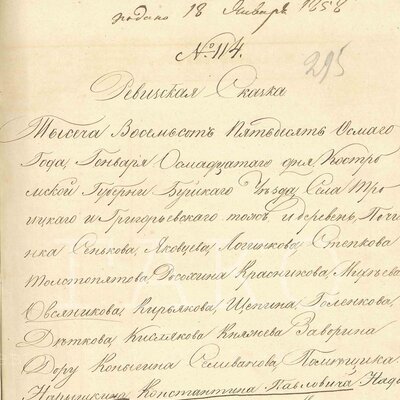 подано 18 Января 1858
№ 114.
295
Ревизская Сказка
Тысяча Восемьсотъ Пятьдесятъ Осмаго
Года, Генваря Осмадцатаго дня, Костро
мской Губерніи Буйскаго Уѣзда, Села Тро
ицкаго и Григорьевскаго тожъ и деревень, Почи
нка Сенькова, Яковцева, Логинкова, Степкова
Толстопятова, Красникова,
Овсяникова, Кирьякова, Щепина, Голенкова,
Дѣткова, Кислякова Княжева Заворина
Дору Копыгина Селиванова, Помѣщика
Нарышкина, Константина Павловича, Надв